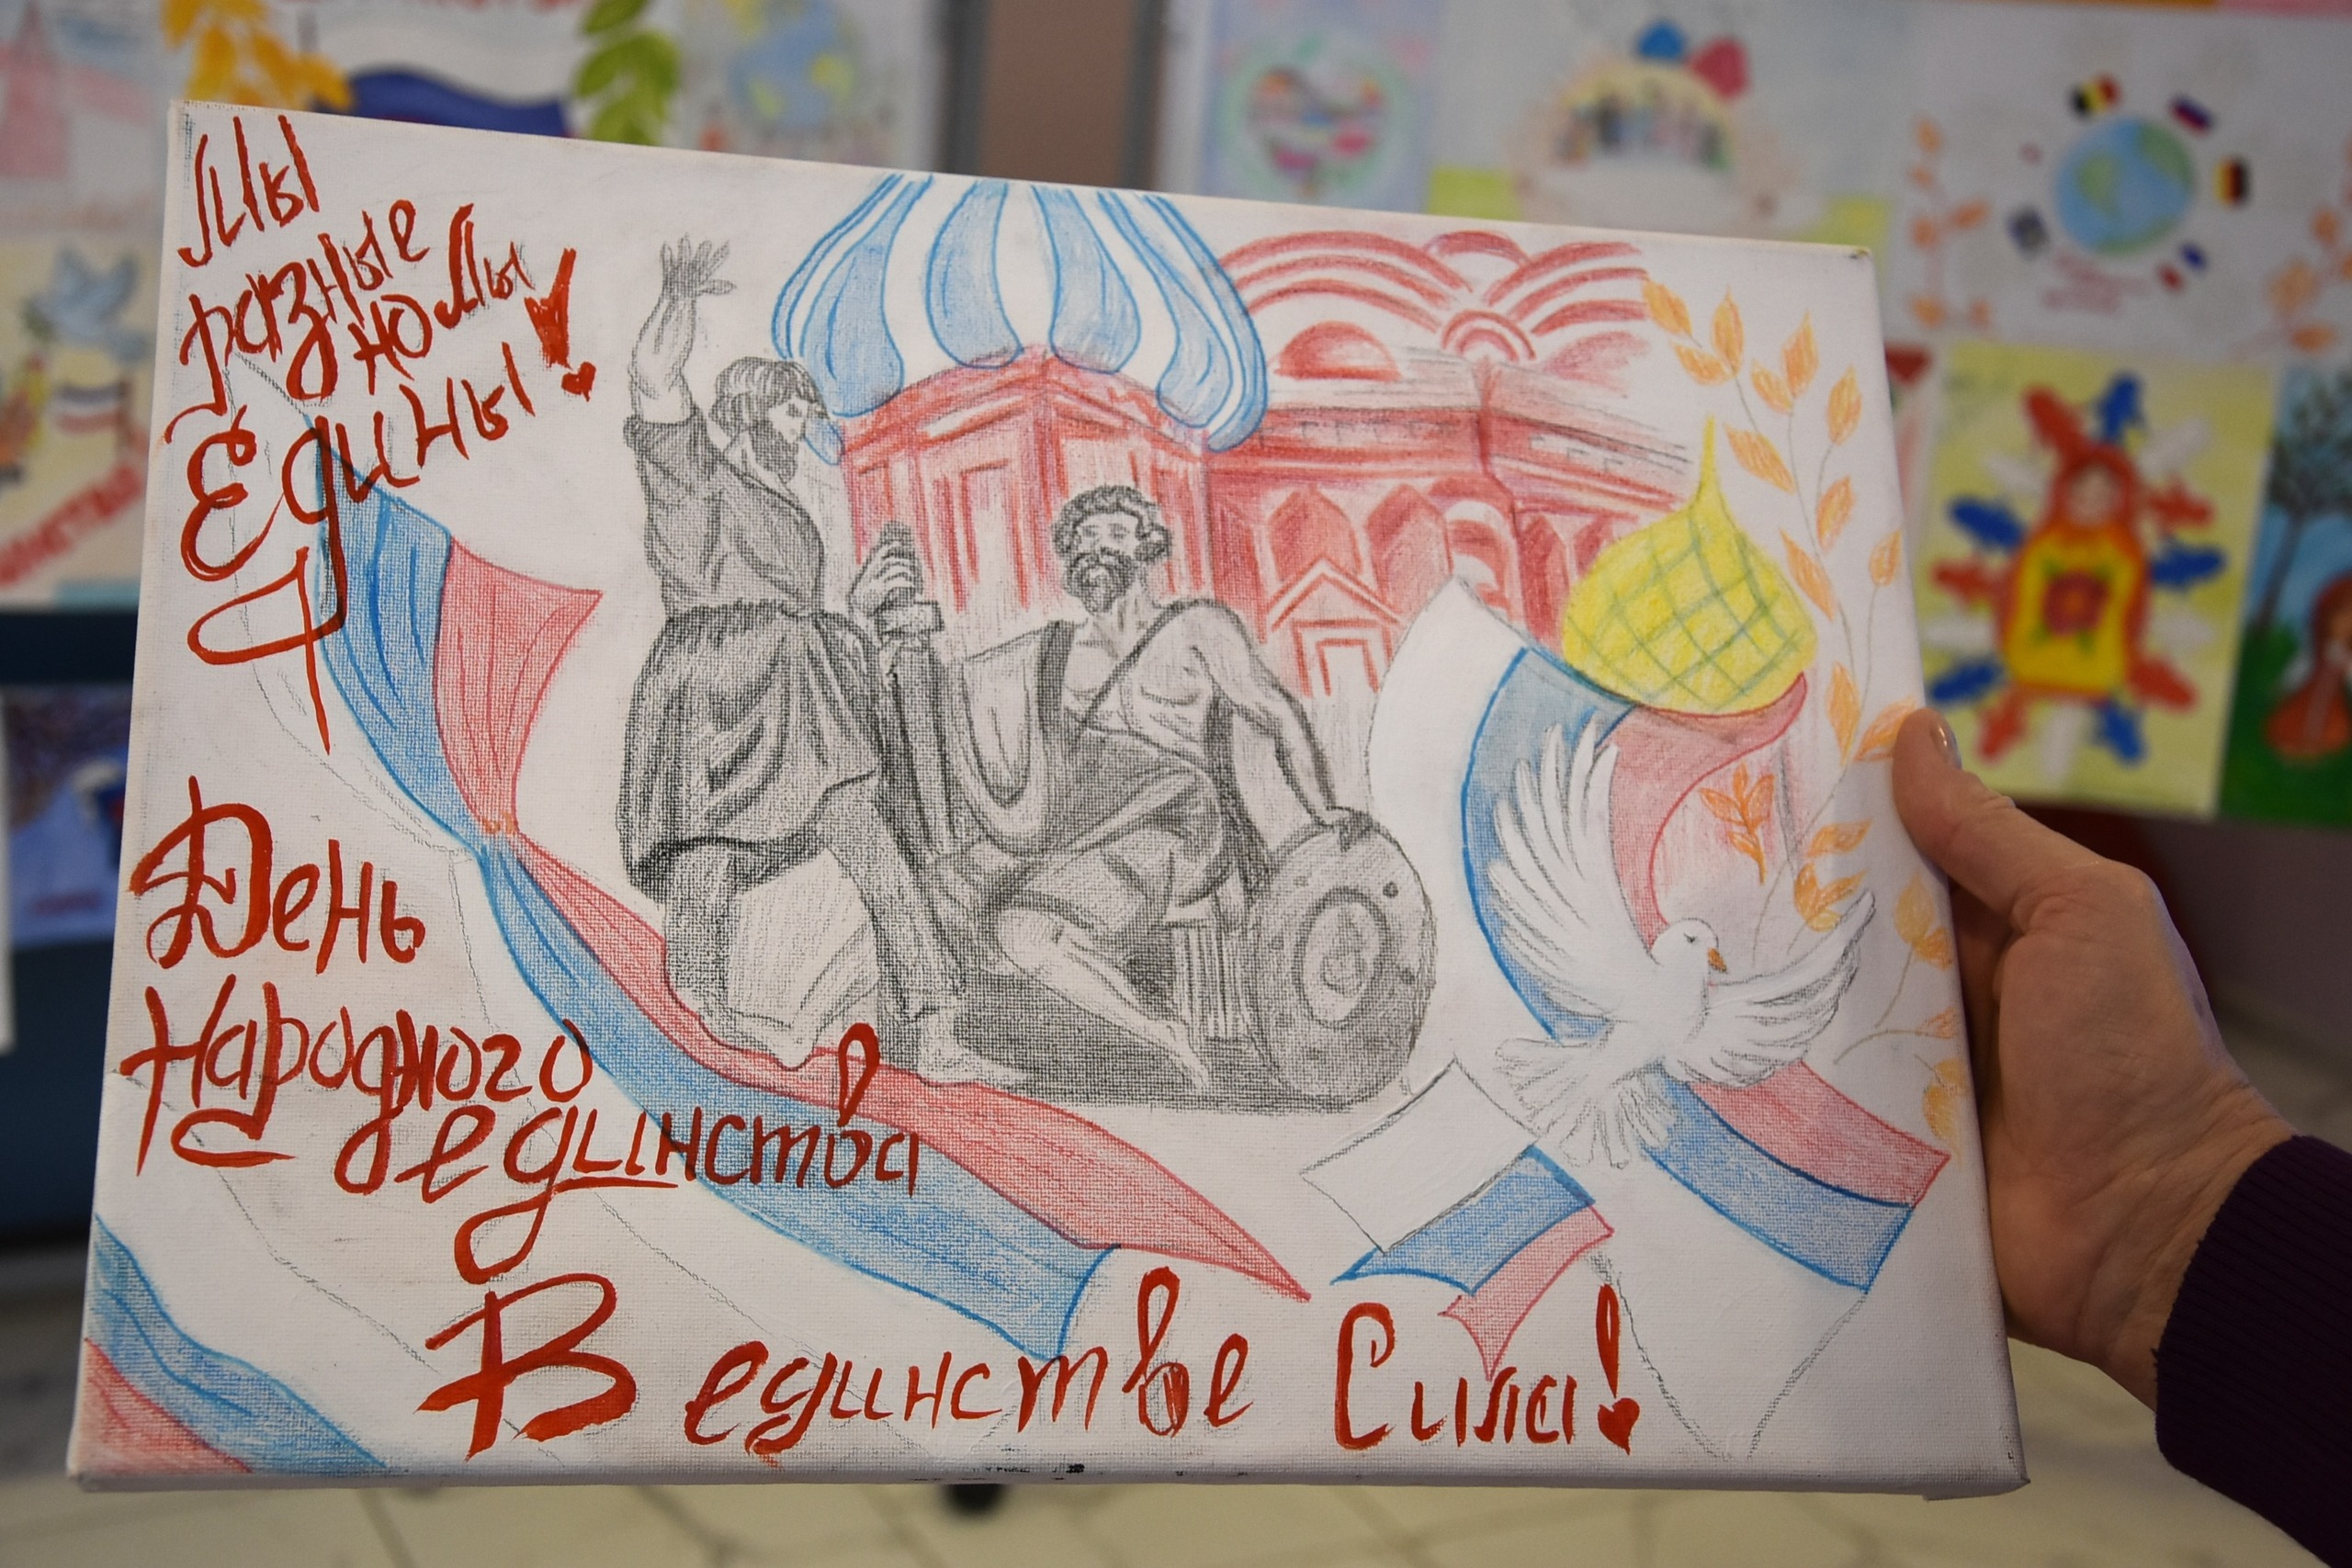 Мы
разные
но Мы
Едины!
День
Народного
единства
В единстве Сила!